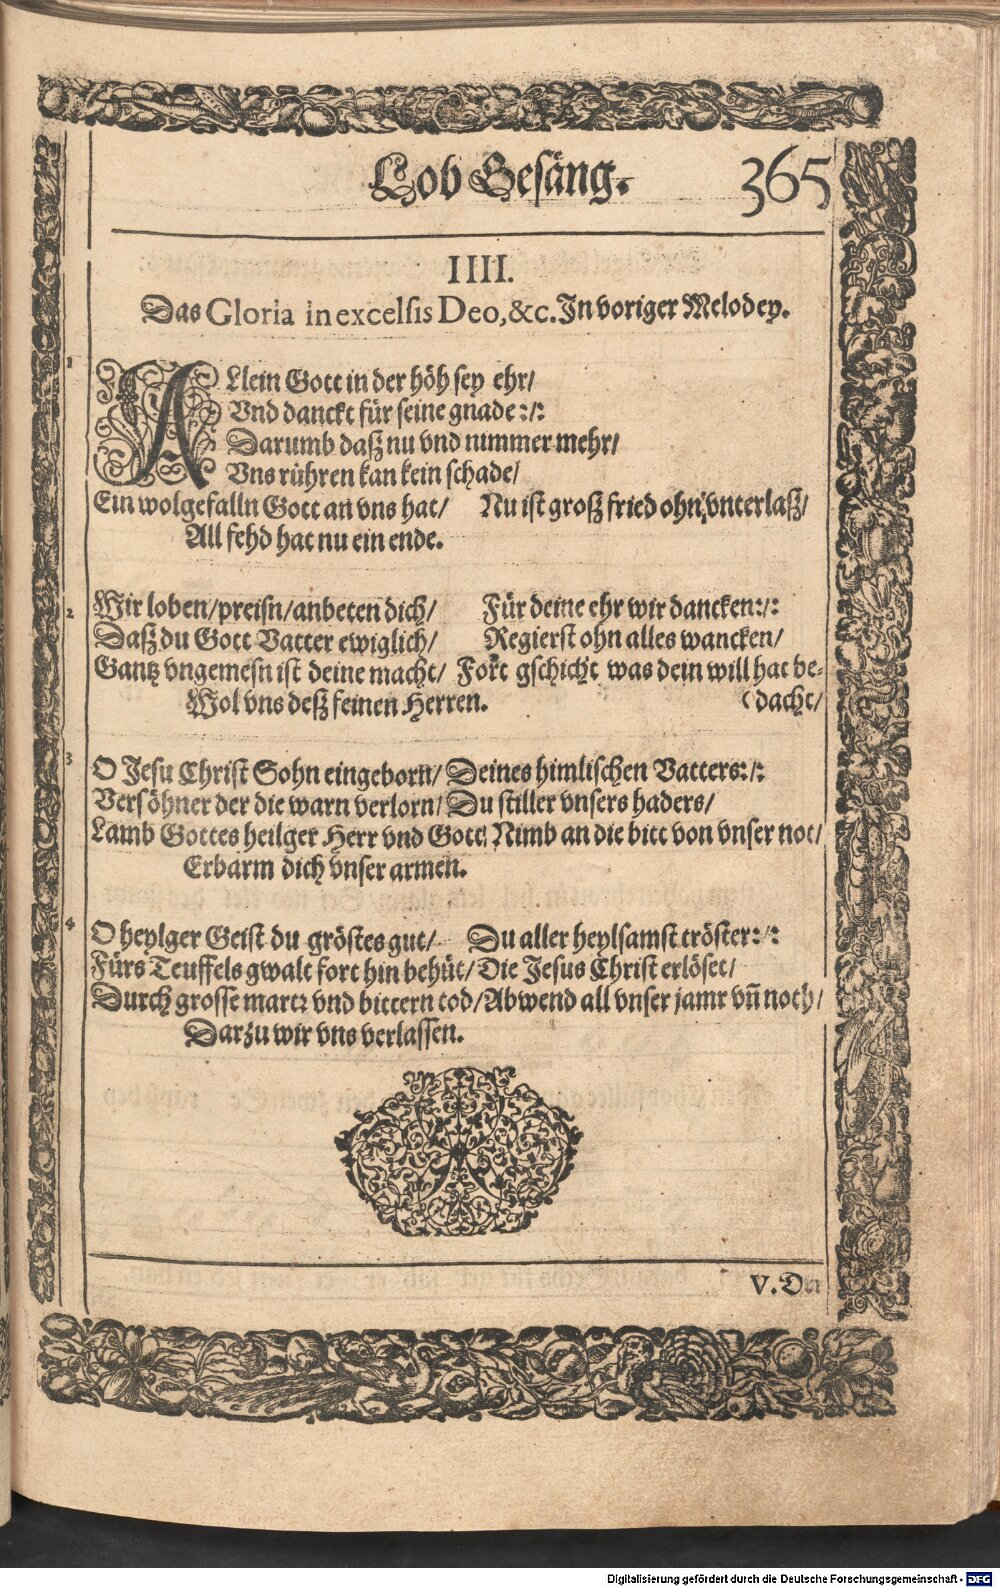 Lob Gesäng. 365
IIII.
Das Gloria in excelsis Deo, &c. In voriger Melodey.
1 ALlein Gott in der höh sey ehr/
Vnd danckt für seine gnade :/:
Darumb daß nu vnd nimmer mehr/
Vns rühren kan kein schade/
Ein wolgefalln Gott an vns hat/ Nu ist groß fried ohn vnterlaß/
All fehd hat nu ein ende.
2 Wir loben/preisn/anbeten dich/ Für deine ehr wir dancken:/:
Daß du Gott Vatter ewiglich/ Regierst ohn alles wancken/
Gantz vngemesn ist deine macht/ Fort gschicht was dein will hat be-
Wol vns deß feinen Herren. (dacht/
3 O Jesu Christ Sohn eingeborn/ Deines himlischen Vatters:/:
Versöhner der die warn verlorn/ Du stiller vnsers haders/
Lamb Gottes heilger Herr vnd Gott/ Nimb an die bitt von vnser not/
Erbarm dich vnser armen.
4 O heylger Geist du gröstes gut/ Du aller heylsamst tröster:/:
Fürs Teuffels gwalt fort hin behüt/ Die Jesus Christ erlöset/
Durch grosse martr vnd bittern tod/ Abwend all vnser jamr vñ noth/
Darzu wir vns verlassen.
V. Der
Digitalisierung gefördert durch die Deutsche Forschungsgemeinschaft - DFG